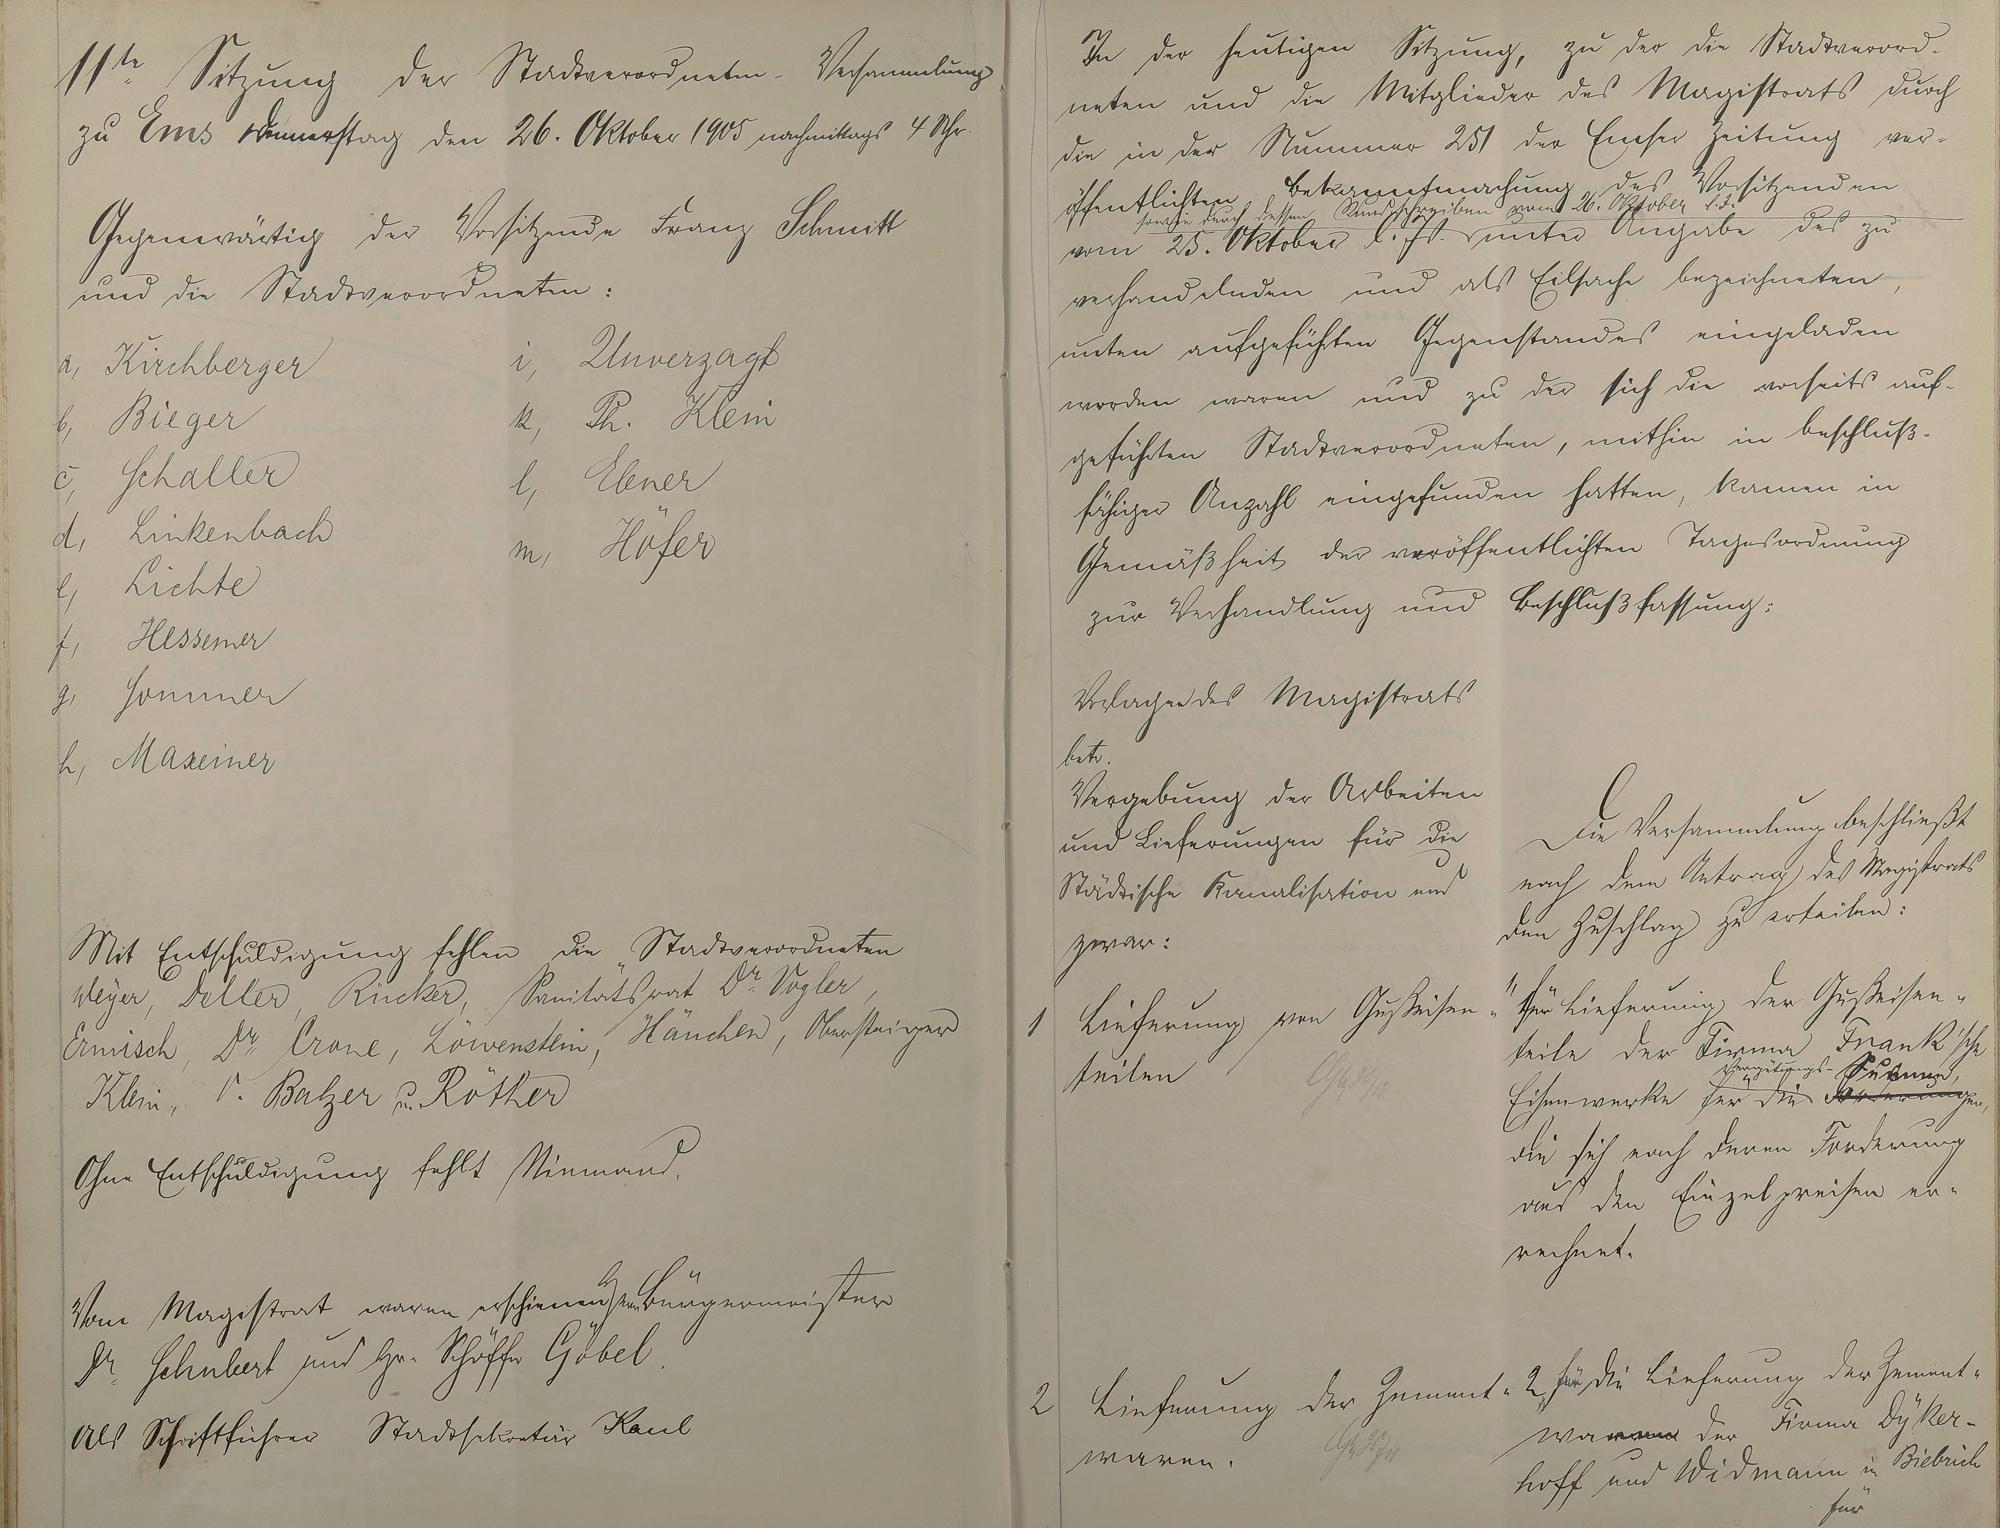 11te Sitzung der Stadtverordneten-Versammlung
zu Ems Donnerstag den 26. Oktober 1905 nachmittags 4 Uhr.
Gegenwärtig der Vorsitzende Franz Schmitt
und die Stadtverordneten:
a, Kirchberger
b, Bieger
c, Schaller
d, Linkenbach
e, Lichte
f, Hessemer
g, Sommer
h, Maxeiner
i, Unverzagt
k, Ph. Klein
l, Ebner
m, Höfer
Mit Entschuldigung fehlen die Stadtverordneten
Weyer, Deller, Rücker, Sanitätsrat Dr. Vogler,
Ermisch, Dr. Crone, Löwenstein, Hänchen, Obersteiger
Klein, Balzer u. Röther
Ohne Entschuldigung fehlt Niemand.
Vom Magistrat waren erschienen Herr Bürgermeister
Dr. Schubert und Hr. Schöffe Göbel.
Als Schriftführer Stadtsekretär Kaul
In der heutigen Sitzung, zu der die Stadtverord-
neten und die Mitglieder des Magistrats durch
die in der Nummer 251 der Emser Zeitung ver-
öffentlichten Bekanntmachung des Vorsitzenden
sowie durch dessen Rundschreiben vom 26. Oktober l. J.
vom 25. Oktober l. Js. unter Angabe des zu
verhandelnden und als Eilsache bezeichneten,
unten aufgeführten Gegenstandes eingeladen
worden waren und zu der sich die vorseits auf-
geführten Stadtverordneten, mithin in beschluß-
fähiger Anzahl eingefunden hatten, kamen in
Gemäßheit der veröffentlichten Tagesordnung
zur Verhandlung und Beschlußfassung:
Vorlagen des Magistrats
betr.
Vergebung der Arbeiten
und Lieferungen für die
Städtische Kanalisation und
zwar:
1 Lieferung von Gußeisen-
teilen
2 Lieferung der Zement-
waren.
Die Versammlung beschließt
nach dem Antrag des Magistrats
den Zuschlag zu erteilen:
1, für Lieferung der Gußeisen-
teile der Firma Frank'sche
Vergütungs- Summe,
Eisenwerke für die Forderungen,
die sich nach deren Forderung
aus den Einzelpreisen er-
rechnet.
2, für die Lieferung der Zement-
waren der Firma Dyker-
hoff und Widmann in Biebrich
für